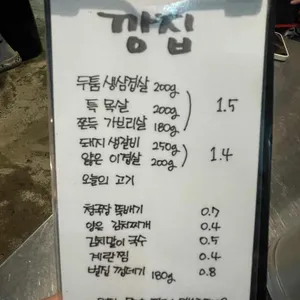 깡집
두툼 생삼겹살 200g
특 목살 200g 1.5
쫀득 가브리살 180g
돼지 생갈비 250g 1.4
얇은 이겹살 200g
오늘의 고기
청국장 뚝배기 0.7
얇은 김치찌개 0.4
김치말이 국수 0.5
계란찜 0.4
벌집 껍데기 180g 0.8